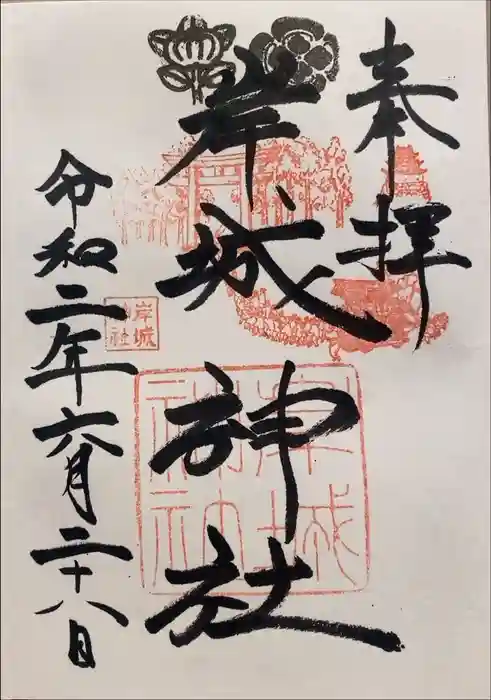 奉拝
岸城神社
令和二年六月二十八日
岸城神社
岸城神社